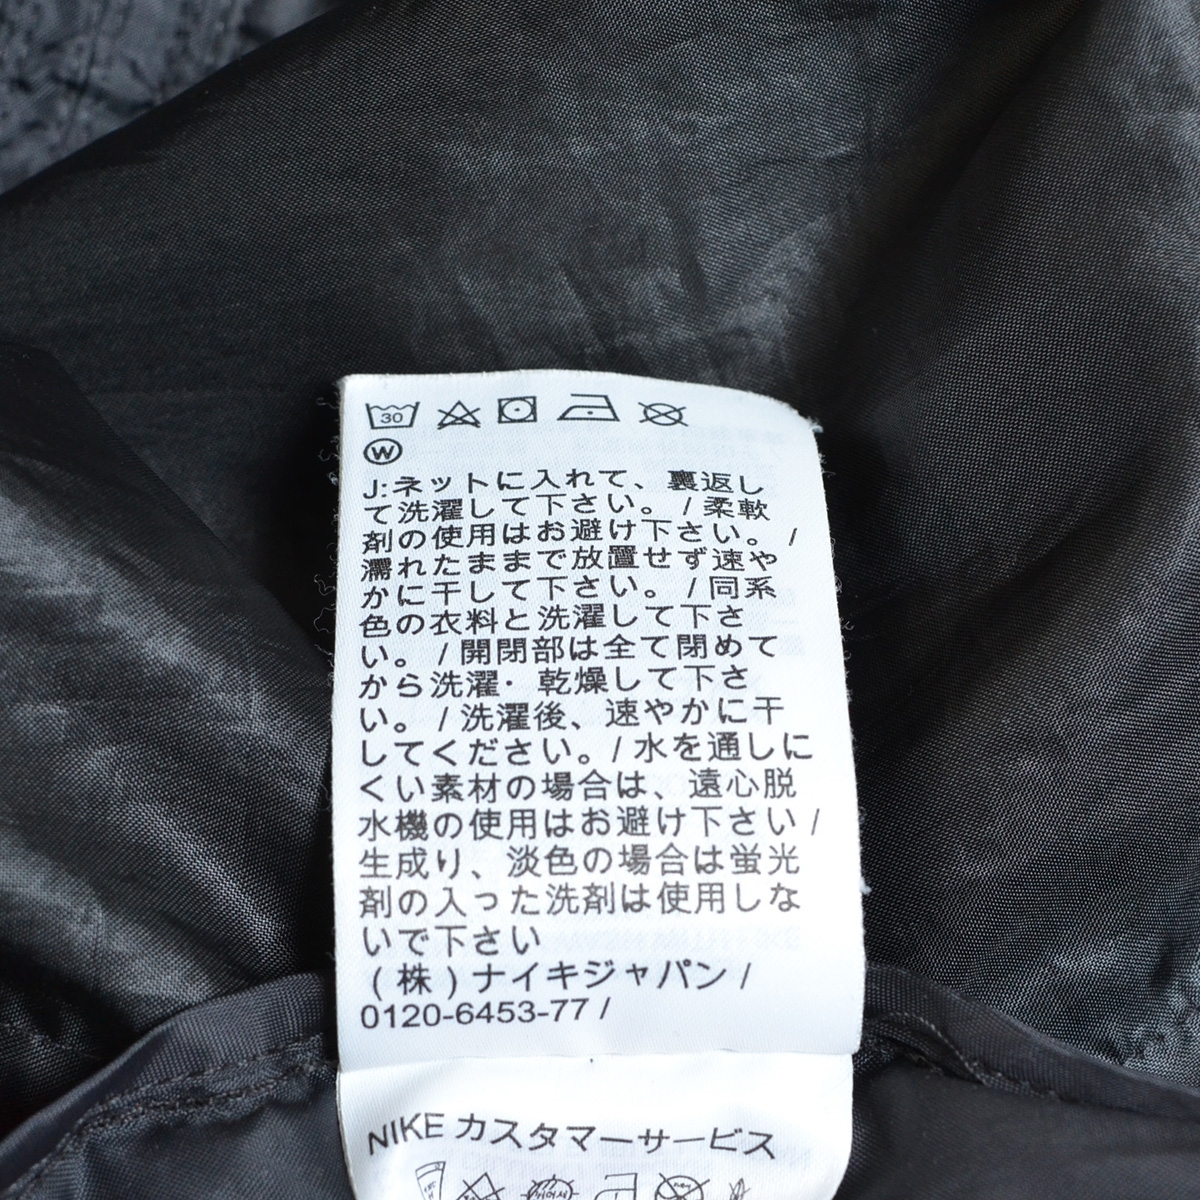 30
W
J:ネットに入れて、裏返し
て洗濯して下さい。 / 柔軟
剤の使用はお避け下さい。 /
濡れたままで放置せず速や
かに干して下さい。 / 同系
色の衣料と洗濯して下さ
い。 / 開閉部は全て閉めて
から洗濯・乾燥して下さ
い。 / 洗濯後、速やかに干
してください。/ 水を通しに
くい素材の場合は、遠心脱
水機の使用はお避け下さい /
生成り、淡色の場合は蛍光
剤の入った洗剤は使用しな
いで下さい
(株) ナイキジャパン /
0120-6453-77 /
NIKE カスタマーサービス